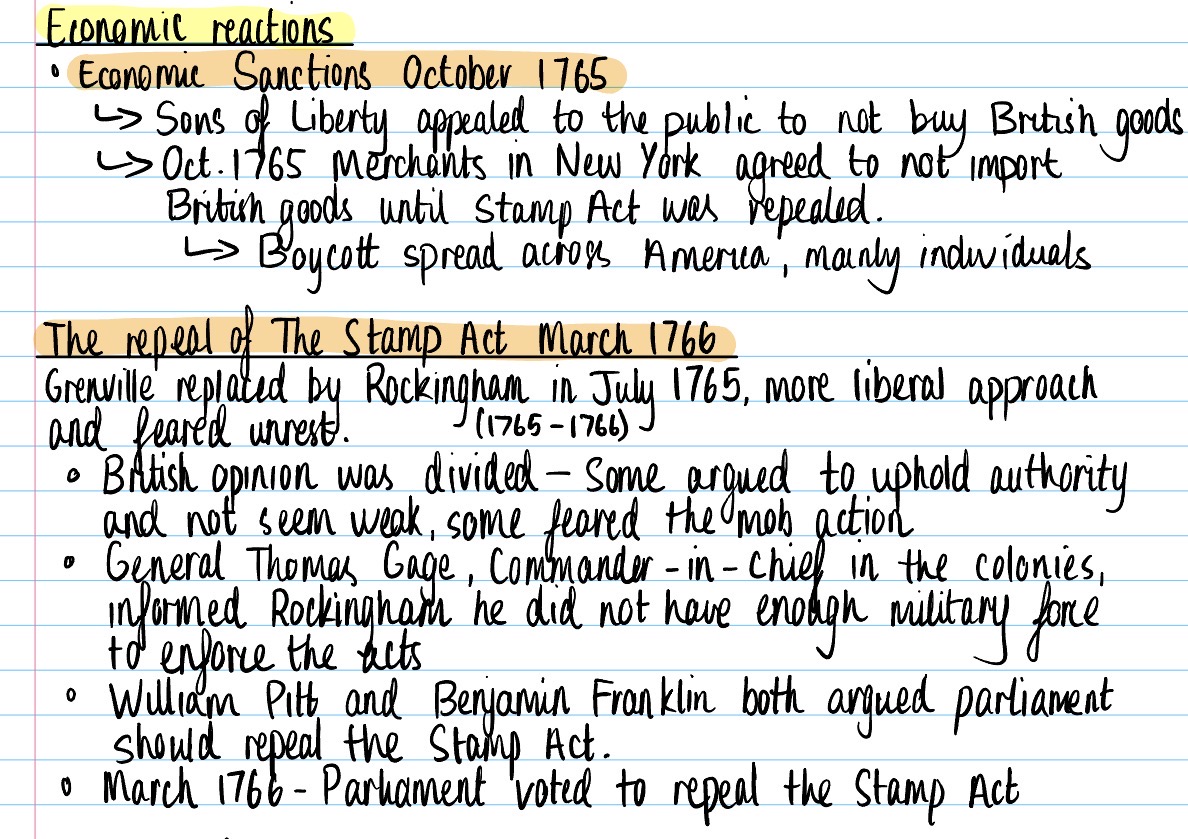 Economic reactions
• Economic Sanctions October 1765
↳ Sons of Liberty appealed to the public to not buy British goods
↳ Oct. 1765 Merchants in New York agreed to not import
British goods until Stamp Act was repealed.
↳ Boycott spread across America, mainly individuals
The repeal of The Stamp Act March 1766
Grenville replaced by Rockingham in July 1765, more liberal approach
and feared unrest. (1765-1766)
• British opinion was divided - Some argued to uphold authority
and not seem weak, some feared the mob action
• General Thomas Gage, Commander-in-chief in the colonies,
informed Rockingham he did not have enough military force
to enforce the acts
• William Pitt and Benjamin Franklin both argued parliament
should repeal the Stamp Act.
• March 1766 - Parliament voted to repeal the Stamp Act